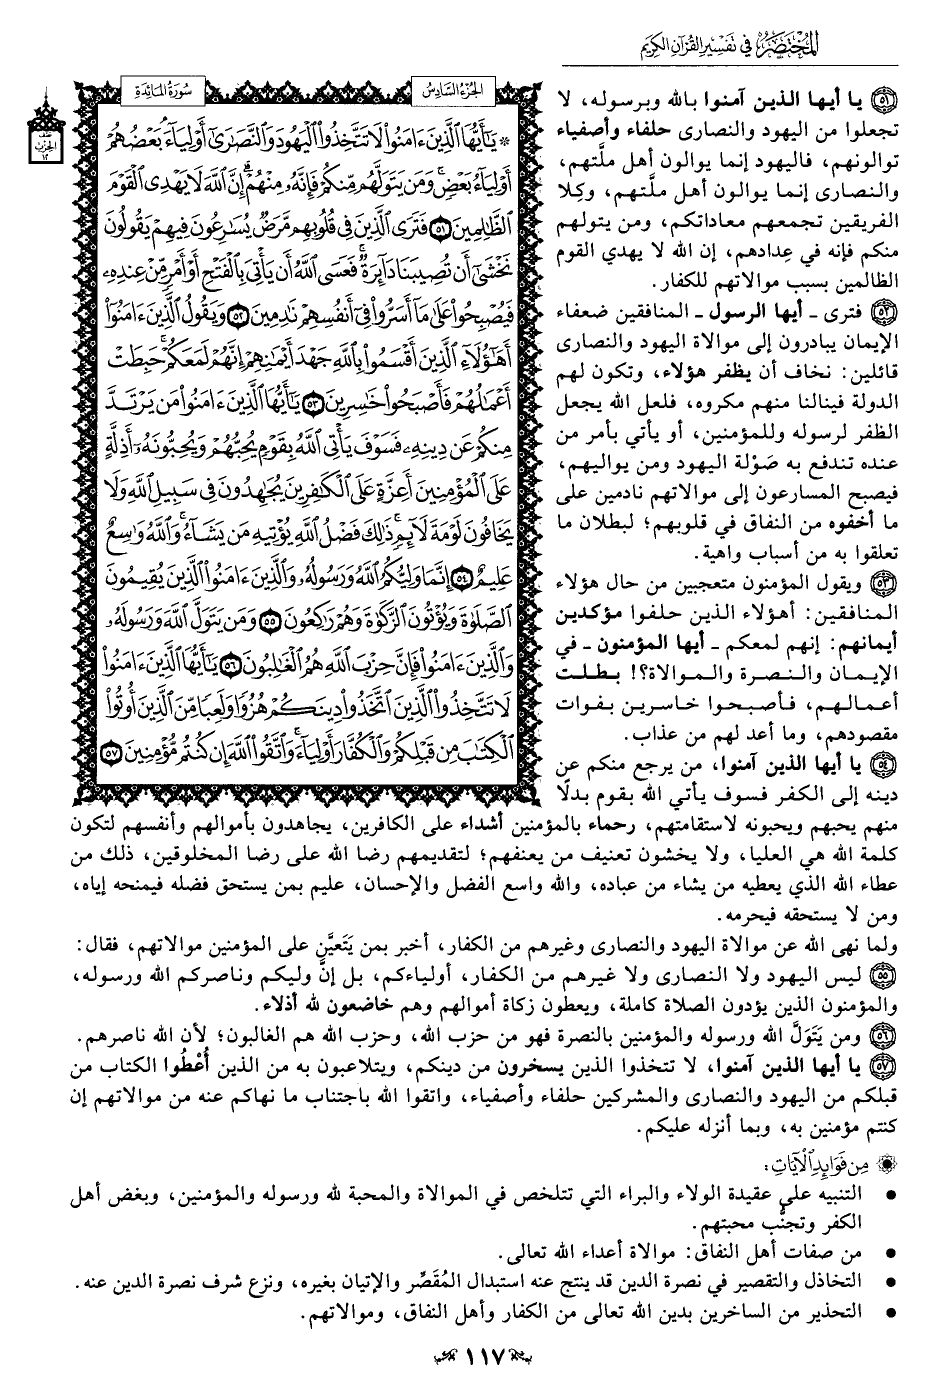 المختصر في تفسير القرآن الكريم
الجزء السادس
سورة المائدة
نصف
الحزب
١٢
* يَٰٓأَيُّهَا ٱلَّذِينَ ءَامَنُوا۟ لَا تَتَّخِذُوا۟ ٱلْيَهُودَ وَٱلنَّصَٰرَىٰٓ أَوْلِيَآءَ بَعْضُهُمْ
أَوْلِيَآءُ بَعْضٍ وَمَن يَتَوَلَّهُم مِّنكُمْ فَإِنَّهُۥ مِنْهُمْ إِنَّ ٱللَّهَ لَا يَهْدِى ٱلْقَوْمَ
ٱلظَّٰلِمِينَ ٥١ فَتَرَى ٱلَّذِينَ فِى قُلُوبِهِم مَّرَضٌ يُسَٰرِعُونَ فِيهِمْ يَقُولُونَ
نَخْشَىٰٓ أَن تُصِيبَنَا دَآئِرَةٌ فَعَسَى ٱللَّهُ أَن يَأْتِىَ بِٱلْفَتْحِ أَوْ أَمْرٍ مِّنْ عِندِهِۦ
فَيُصْبِحُوا۟ عَلَىٰ مَآ أَسَرُّوا۟ فِىٓ أَنفُسِهِمْ نَٰدِمِينَ ٥٢ وَيَقُولُ ٱلَّذِينَ ءَامَنُوٓا۟
أَهَٰٓؤُلَآءِ ٱلَّذِينَ أَقْسَمُوا۟ بِٱللَّهِ جَهْدَ أَيْمَٰنِهِمْ إِنَّهُمْ لَمَعَكُمْ حَبِطَتْ
أَعْمَٰلُهُمْ فَأَصْبَحُوا۟ خَٰسِرِينَ ٥٣ يَٰٓأَيُّهَا ٱلَّذِينَ ءَامَنُوا۟ مَن يَرْتَدَّ
مِنكُمْ عَن دِينِهِۦ فَسَوْفَ يَأْتِى ٱللَّهُ بِقَوْمٍ يُحِبُّهُمْ وَيُحِبُّونَهُۥٓ أَذِلَّةٍ
عَلَى ٱلْمُؤْمِنِينَ أَعِزَّةٍ عَلَى ٱلْكَٰفِرِينَ يُجَٰهِدُونَ فِى سَبِيلِ ٱللَّهِ وَلَا
يَخَافُونَ لَوْمَةَ لَآئِمٍ ذَٰلِكَ فَضْلُ ٱللَّهِ يُؤْتِيهِ مَن يَشَآءُ وَٱللَّهُ وَٰسِعٌ
عَلِيمٌ ٥٤ إِنَّمَا وَلِيُّكُمُ ٱللَّهُ وَرَسُولُهُۥ وَٱلَّذِينَ ءَامَنُوا۟ ٱلَّذِينَ يُقِيمُونَ
ٱلصَّلَوٰةَ وَيُؤْتُونَ ٱلزَّكَوٰةَ وَهُمْ رَٰكِعُونَ ٥٥ وَمَن يَتَوَلَّ ٱللَّهَ وَرَسُولَهُۥ
وَٱلَّذِينَ ءَامَنُوا۟ فَإِنَّ حِزْبَ ٱللَّهِ هُمُ ٱلْغَٰلِبُونَ ٥٦ يَٰٓأَيُّهَا ٱلَّذِينَ ءَامَنُوا۟
لَا تَتَّخِذُوا۟ ٱلَّذِينَ ٱتَّخَذُوا۟ دِينَكُمْ هُزُوًا وَلَعِبًا مِّنَ ٱلَّذِينَ أُوتُوا۟
ٱلْكِتَٰبَ مِن قَبْلِكُمْ وَٱلْكُفَّارَ أَوْلِيَآءَ وَٱتَّقُوا۟ ٱللَّهَ إِن كُنتُم مُّؤْمِنِينَ ٥٧
٥١ يا أيها الذين آمنوا بالله وبرسوله، لا
تجعلوا من اليهود والنصارى حلفاء وأصفياء
توالونهم، فاليهود إنما يوالون أهل ملَّتهم،
والنصارى إنما يوالون أهل ملَّتهم، وكِلا
الفريقين تجمعهم معاداتكم، ومن يتولهم
منكم فإنه في عِدادهم، إن الله لا يهدي القوم
الظالمين بسبب موالاتهم للكفار.
٥٢ فترى ـ أيها الرسول ـ المنافقين ضعفاء
الإيمان يبادرون إلى موالاة اليهود والنصارى
قائلين: نخاف أن يظفر هؤلاء، وتكون لهم
الدولة فينالنا منهم مكروه، فلعل الله يجعل
الظفر لرسوله وللمؤمنين، أو يأتي بأمر من
عنده تندفع به صَوْلة اليهود ومن يواليهم،
فيصبح المسارعون إلى موالاتهم نادمين على
ما أخفوه من النفاق في قلوبهم؛ لبطلان ما
تعلقوا به من أسباب واهية.
٥٣ ويقول المؤمنون متعجبين من حال هؤلاء
المنافقين: أهؤلاء الذين حلفوا مؤكدين
أيمانهم: إنهم لمعكم ـ أيها المؤمنون ـ في
الإيمان والنصرة والموالاة؟! بطلت
أعمالهم، فأصبحوا خاسرين بفوات
مقصودهم، وما أعد لهم من عذاب.
٥٤ يا أيها الذين آمنوا، من يرجع منكم عن
دينه إلى الكفر فسوف يأتي الله بقوم بدلًا
منهم يحبهم ويحبونه لاستقامتهم، رحماء بالمؤمنين أشداء على الكافرين، يجاهدون بأموالهم وأنفسهم لتكون
كلمة الله هي العليا، ولا يخشون تعنيف من يعنفهم؛ لتقديمهم رضا الله على رضا المخلوقين، ذلك من
عطاء الله الذي يعطيه من يشاء من عباده، والله واسع الفضل والإحسان، عليم بمن يستحق فضله فيمنحه إياه،
ومن لا يستحقه فيحرمه.
ولما نهى الله عن موالاة اليهود والنصارى وغيرهم من الكفار، أخبر بمن يَتَعيَّن على المؤمنين موالاتهم، فقال:
٥٥ ليس اليهود ولا النصارى ولا غيرهم من الكفار، أولياءكم، بل إنَّ وليكم وناصركم الله ورسوله،
والمؤمنون الذين يؤدون الصلاة كاملة، ويعطون زكاة أموالهم وهم خاضعون لله أذلاء.
٥٦ ومن يَتَوَلَّ الله ورسوله والمؤمنين بالنصرة فهو من حزب الله، وحزب الله هم الغالبون؛ لأن الله ناصرهم.
٥٧ يا أيها الذين آمنوا، لا تتخذوا الذين يسخرون من دينكم، ويتلاعبون به من الذين أُعْطُوا الكتاب من
قبلكم من اليهود والنصارى والمشركين حلفاء وأصفياء، واتقوا الله باجتناب ما نهاكم عنه من موالاتهم إن
كنتم مؤمنين به، وبما أنزله عليكم.
من فوائد الآيات:
• التنبيه على عقيدة الولاء والبراء التي تتلخص في الموالاة والمحبة لله ورسوله والمؤمنين، وبغض أهل
الكفر وتجنُّب محبتهم.
• من صفات أهل النفاق: موالاة أعداء الله تعالى.
• التخاذل والتقصير في نصرة الدين قد ينتج عنه استبدال المُقَصِّر والإتيان بغيره، ونزع شرف نصرة الدين عنه.
• التحذير من الساخرين بدين الله تعالى من الكفار وأهل النفاق، وموالاتهم.
١١٧